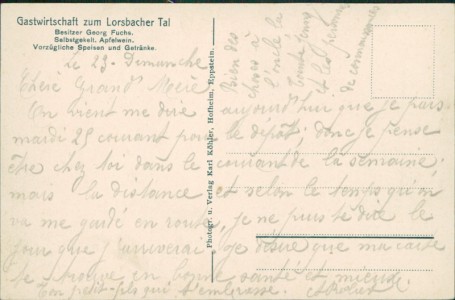 Gastwirtschaft zum Lorsbacher Tal
Besitzer Georg Fuchs.
Selbstgekelt. Apfelwein.
Vorzügliche Speisen und Getränke.
Le 23 - Dimanche
Chère Grand Mère
On vient me dire aujourd'hui que je pars
mardi 25 courant pour le dépôt; donc je pense
être chez toi dans le courant de la semaine;
mais la distance et selon le temps qu'on
va me garder en route, je ne puis te dire le
jour que j'arriverai. Je désire que ma carte
te trouve en bonne santé et
Ton petit-fils qui t'embrasse.
Bien des
choses à
l'oncle la
tante
et les personnes
de connaissances
Photogr. u. Verlag Karl Köhler, Hofheim, Eppstein.